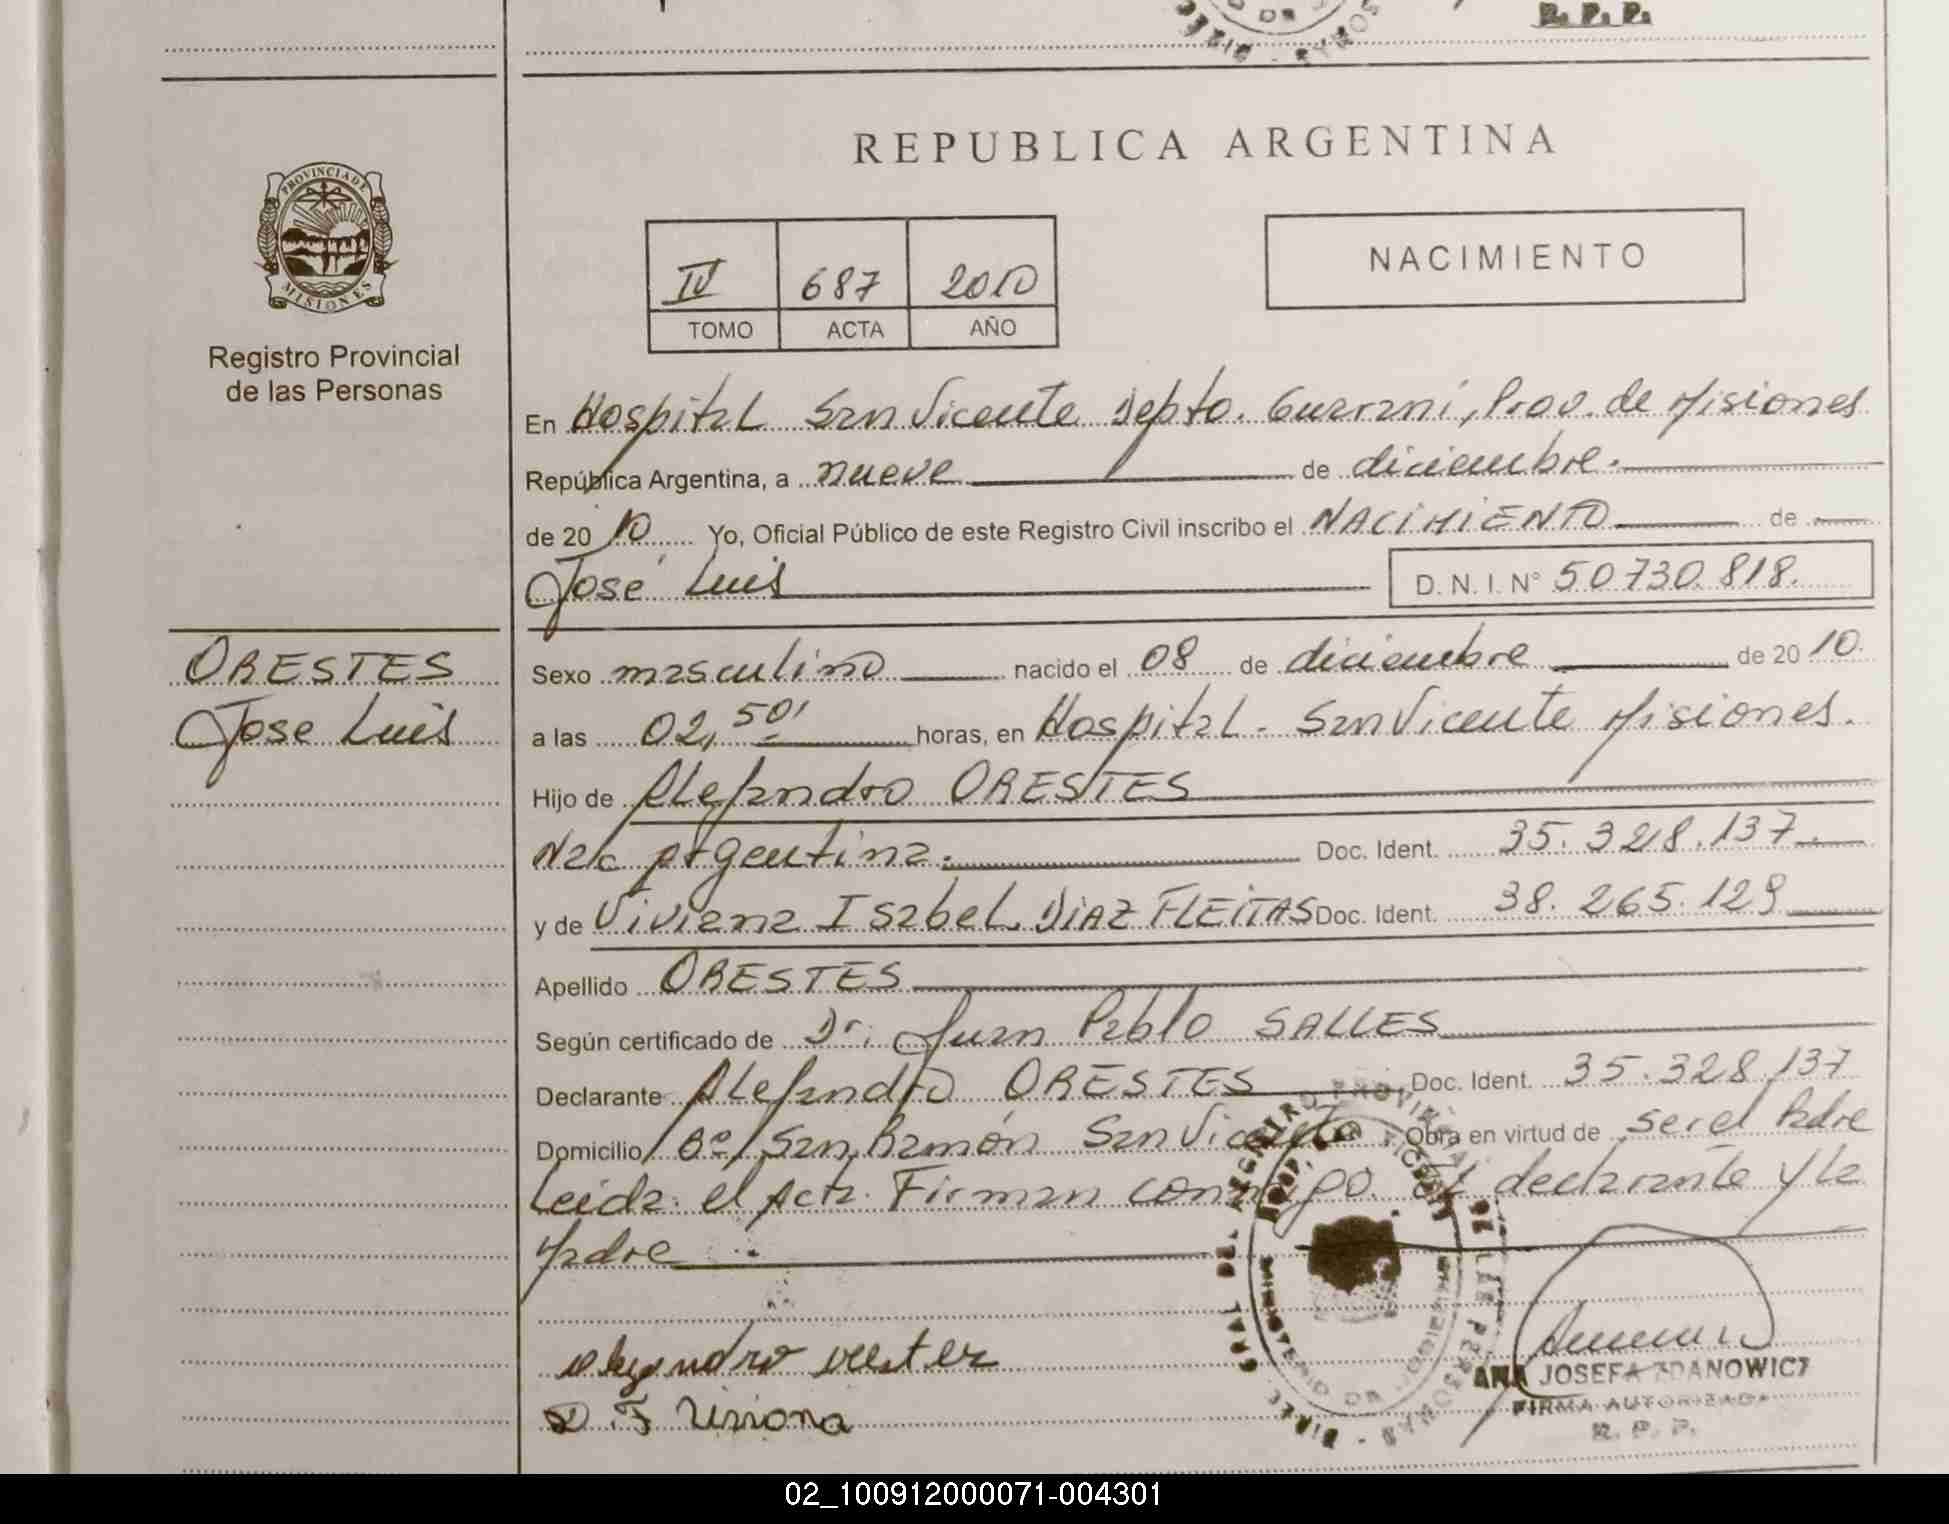 R. P. P.
REPUBLICA ARGENTINA
PROVINCIA DE
MISIONES
Registro Provincial
de las Personas
IV 687 2010
TOMO ACTA AÑO
NACIMIENTO
En Hospital San Vicente Depto. Guaraní, Prov. de Misiones
República Argentina, a nueve de diciembre.
de 2010 Yo, Oficial Público de este Registro Civil inscribo el NACIMIENTO de
José Luis D. N. I. N° 50.730.818.
ORESTES
Jose Luis
Sexo masculino nacido el 08 de diciembre de 2010.
a las 02,50' horas, en Hospital - San Vicente Misiones.
Hijo de Alejandro ORESTES
Nac Argentina. Doc. Ident. 35.328.137
y de Viviana Isabel DIAZ FLEITAS Doc. Ident. 38.265.129
Apellido ORESTES
Según certificado de Dr. Juan Pablo SALLES
Declarante Alejandro ORESTES Doc. Ident. 35.328.137
Domicilio Bº San Ramón San Vicente Obra en virtud de ser el Padre
Leida el Acta. Firman conmigo El declarante y la
Madre
D F Viviana
ANA JOSEFA ZDANOWICZ
FIRMA AUTORIZADA
R. P. P.
02_100912000071-004301